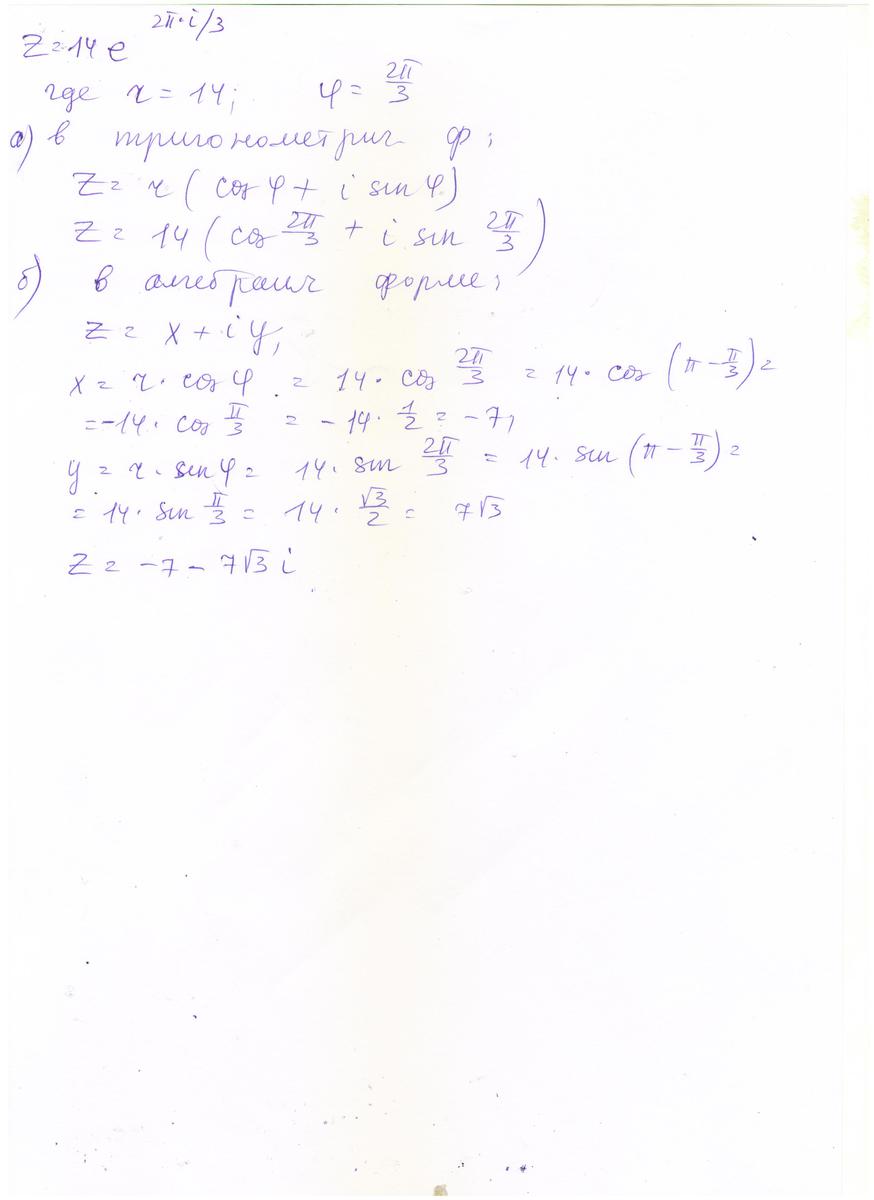 Z = 14 e^(2π·i/3)
где r = 14; φ = 2π/3
а) в тригонометрич ф;
Z = r ( cos φ + i sin φ)
Z = 14 ( cos 2π/3 + i sin 2π/3 )
б) в алгебраич форме;
Z = x + i y,
x = r · cos φ = 14 · cos 2π/3 = 14 · cos (π − π/3) =
= −14 · cos π/3 = − 14 · 1/2 = − 7;
y = r · sin φ = 14 · sin 2π/3 = 14 · sin (π − π/3) =
= 14 · sin π/3 = 14 · √3/2 = 7√3
Z = −7 − 7√3 i